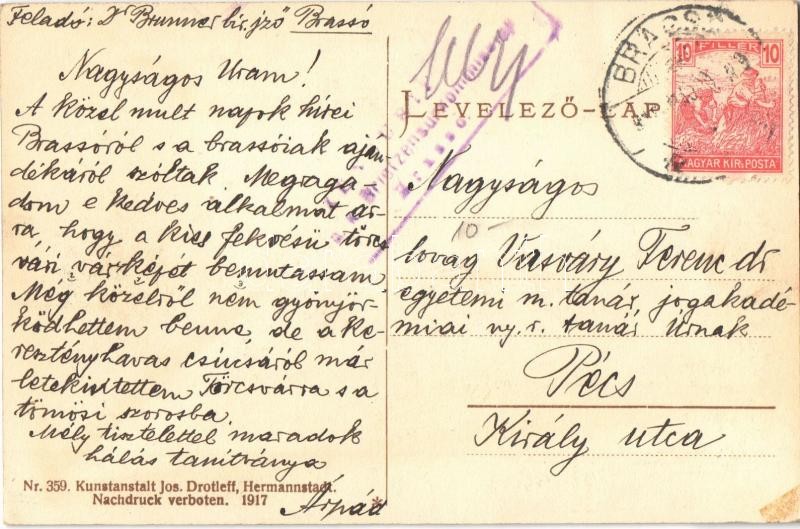 Feladó: Dr Brunner bir. jző Brassó
Nagyságos Uram!
A közel mult napok hirei
Brassóról s a brassóiak aján
dékáról szóltak. Megraga-
dom e kedves alkalmat ar-
ra, hogy a kies fekvésü törcs
vári várképét bemutassam.
Még közelről nem gyönyör
ködhettem benne, de a ke-
resztényhavas csúcsáról már
letekintettem Törcsvárra s a
tömösi szorosba.
Mély tisztelettel maradok
hálás tanítványa
Árpád
Nr. 359. Kunstanstalt Jos. Drotleff, Hermannstadt.
Nachdruck verboten. 1917
LEVELEZŐ-LAP
BRASSÓ
10 FILLER 10
MAGYAR KIR. POSTA
Brassó
10-
Nagyságos
lovag Vasváry Ferenc dr
egyetemi m. tanár, jogakadé-
miai ny. r. tanár Úrnak
Pécs
Király utca